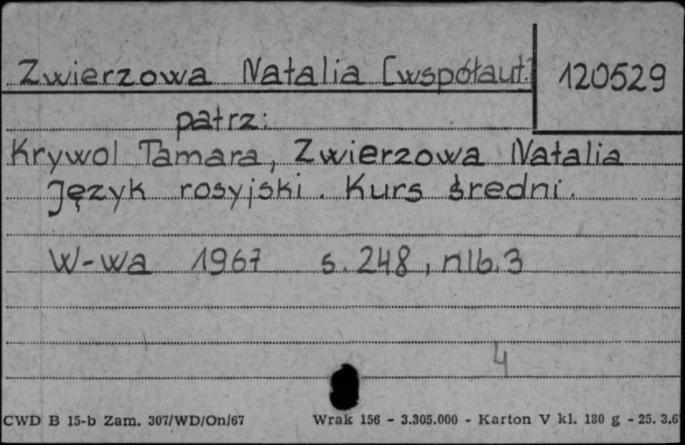 Zwierzowa Natalia [współaut.]
120529
patrz:
Krywol Tamara, Zwierzowa Natalia
Język rosyjski. Kurs średni.
W-wa 1967 s. 248, nlb. 3
4
CWD B 15-b Zam. 307/WD/On/67 Wrak 156 - 3.305.000 - Karton V kl. 180 g - 25. 3.6